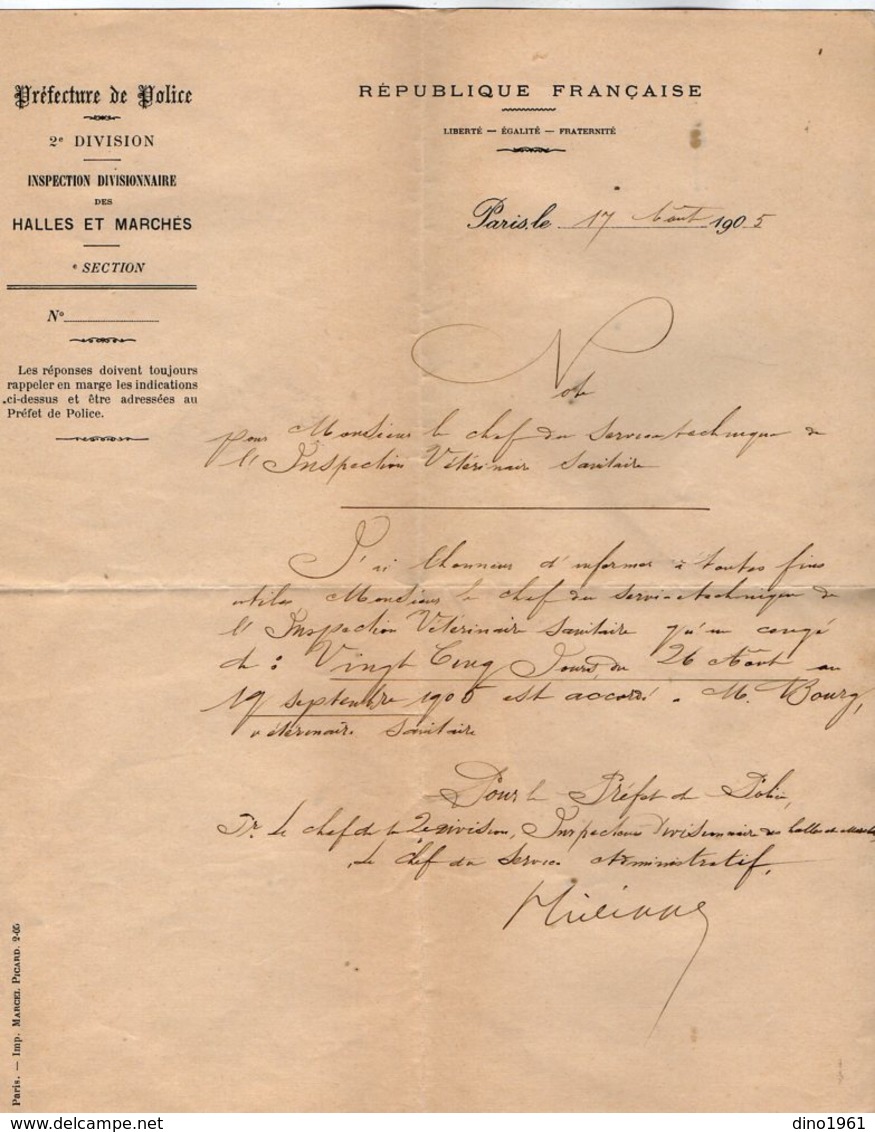 Préfecture de Police
2e DIVISION
INSPECTION DIVISIONNAIRE
DES
HALLES ET MARCHÉS
e SECTION
No
Les réponses doivent toujours
rappeler en marge les indications
ci-dessus et être adressées au
Préfet de Police.
RÉPUBLIQUE FRANÇAISE
LIBERTÉ — ÉGALITÉ — FRATERNITÉ
Paris, le 17 Août 1905
Note
pour Monsieur le chef du service technique de
l'Inspection Vétérinaire sanitaire
J'ai l'honneur d'informer à toutes fins
utiles Monsieur le chef du service technique de
l'Inspection Vétérinaire sanitaire qu'un congé
de : Vingt Cinq Jours, du 26 Août au
19 septembre 1905 est accordé à M. Bourg,
vétérinaire sanitaire
Pour le Préfet de Police,
Pr. le chef de la 2e Division, Inspecteur Divisionnaire des halles et Marchés
Le chef du Service Administratif,
Paris. — Imp. MARCEL PICARD. 2-05
delcampe.net
dino1961